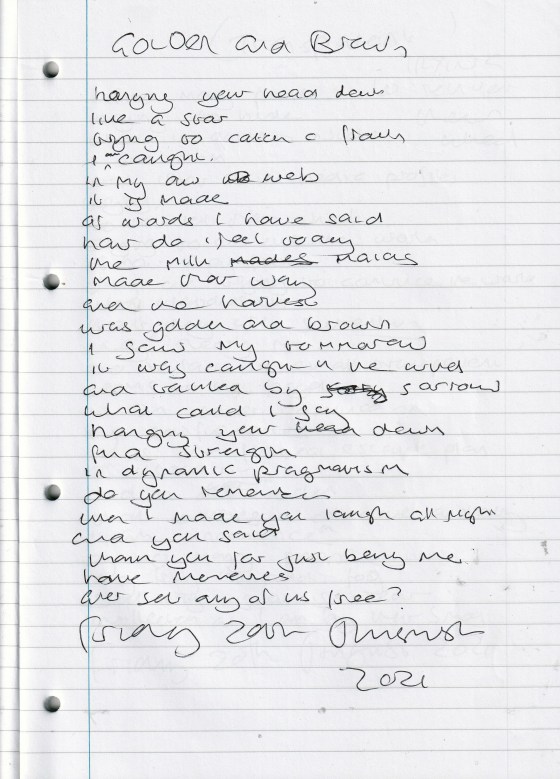 Golden and Brown
hanging your head down
like a star
trying to catch a frown
I am caught
in my own web
it is made
as words I have said
how do I feel today
the milk maids
made their way
and the harvest
was golden and brown
I saw my tomorrow
it was caught in the wind
and tainted by sorrow
what could I say
hanging your head down
find strength
in dynamic pragmatism
do you remember
when I made you laugh all night
and you said
thank you for just being me
have memories
ever set any of us free?
Friday 20th August
2021